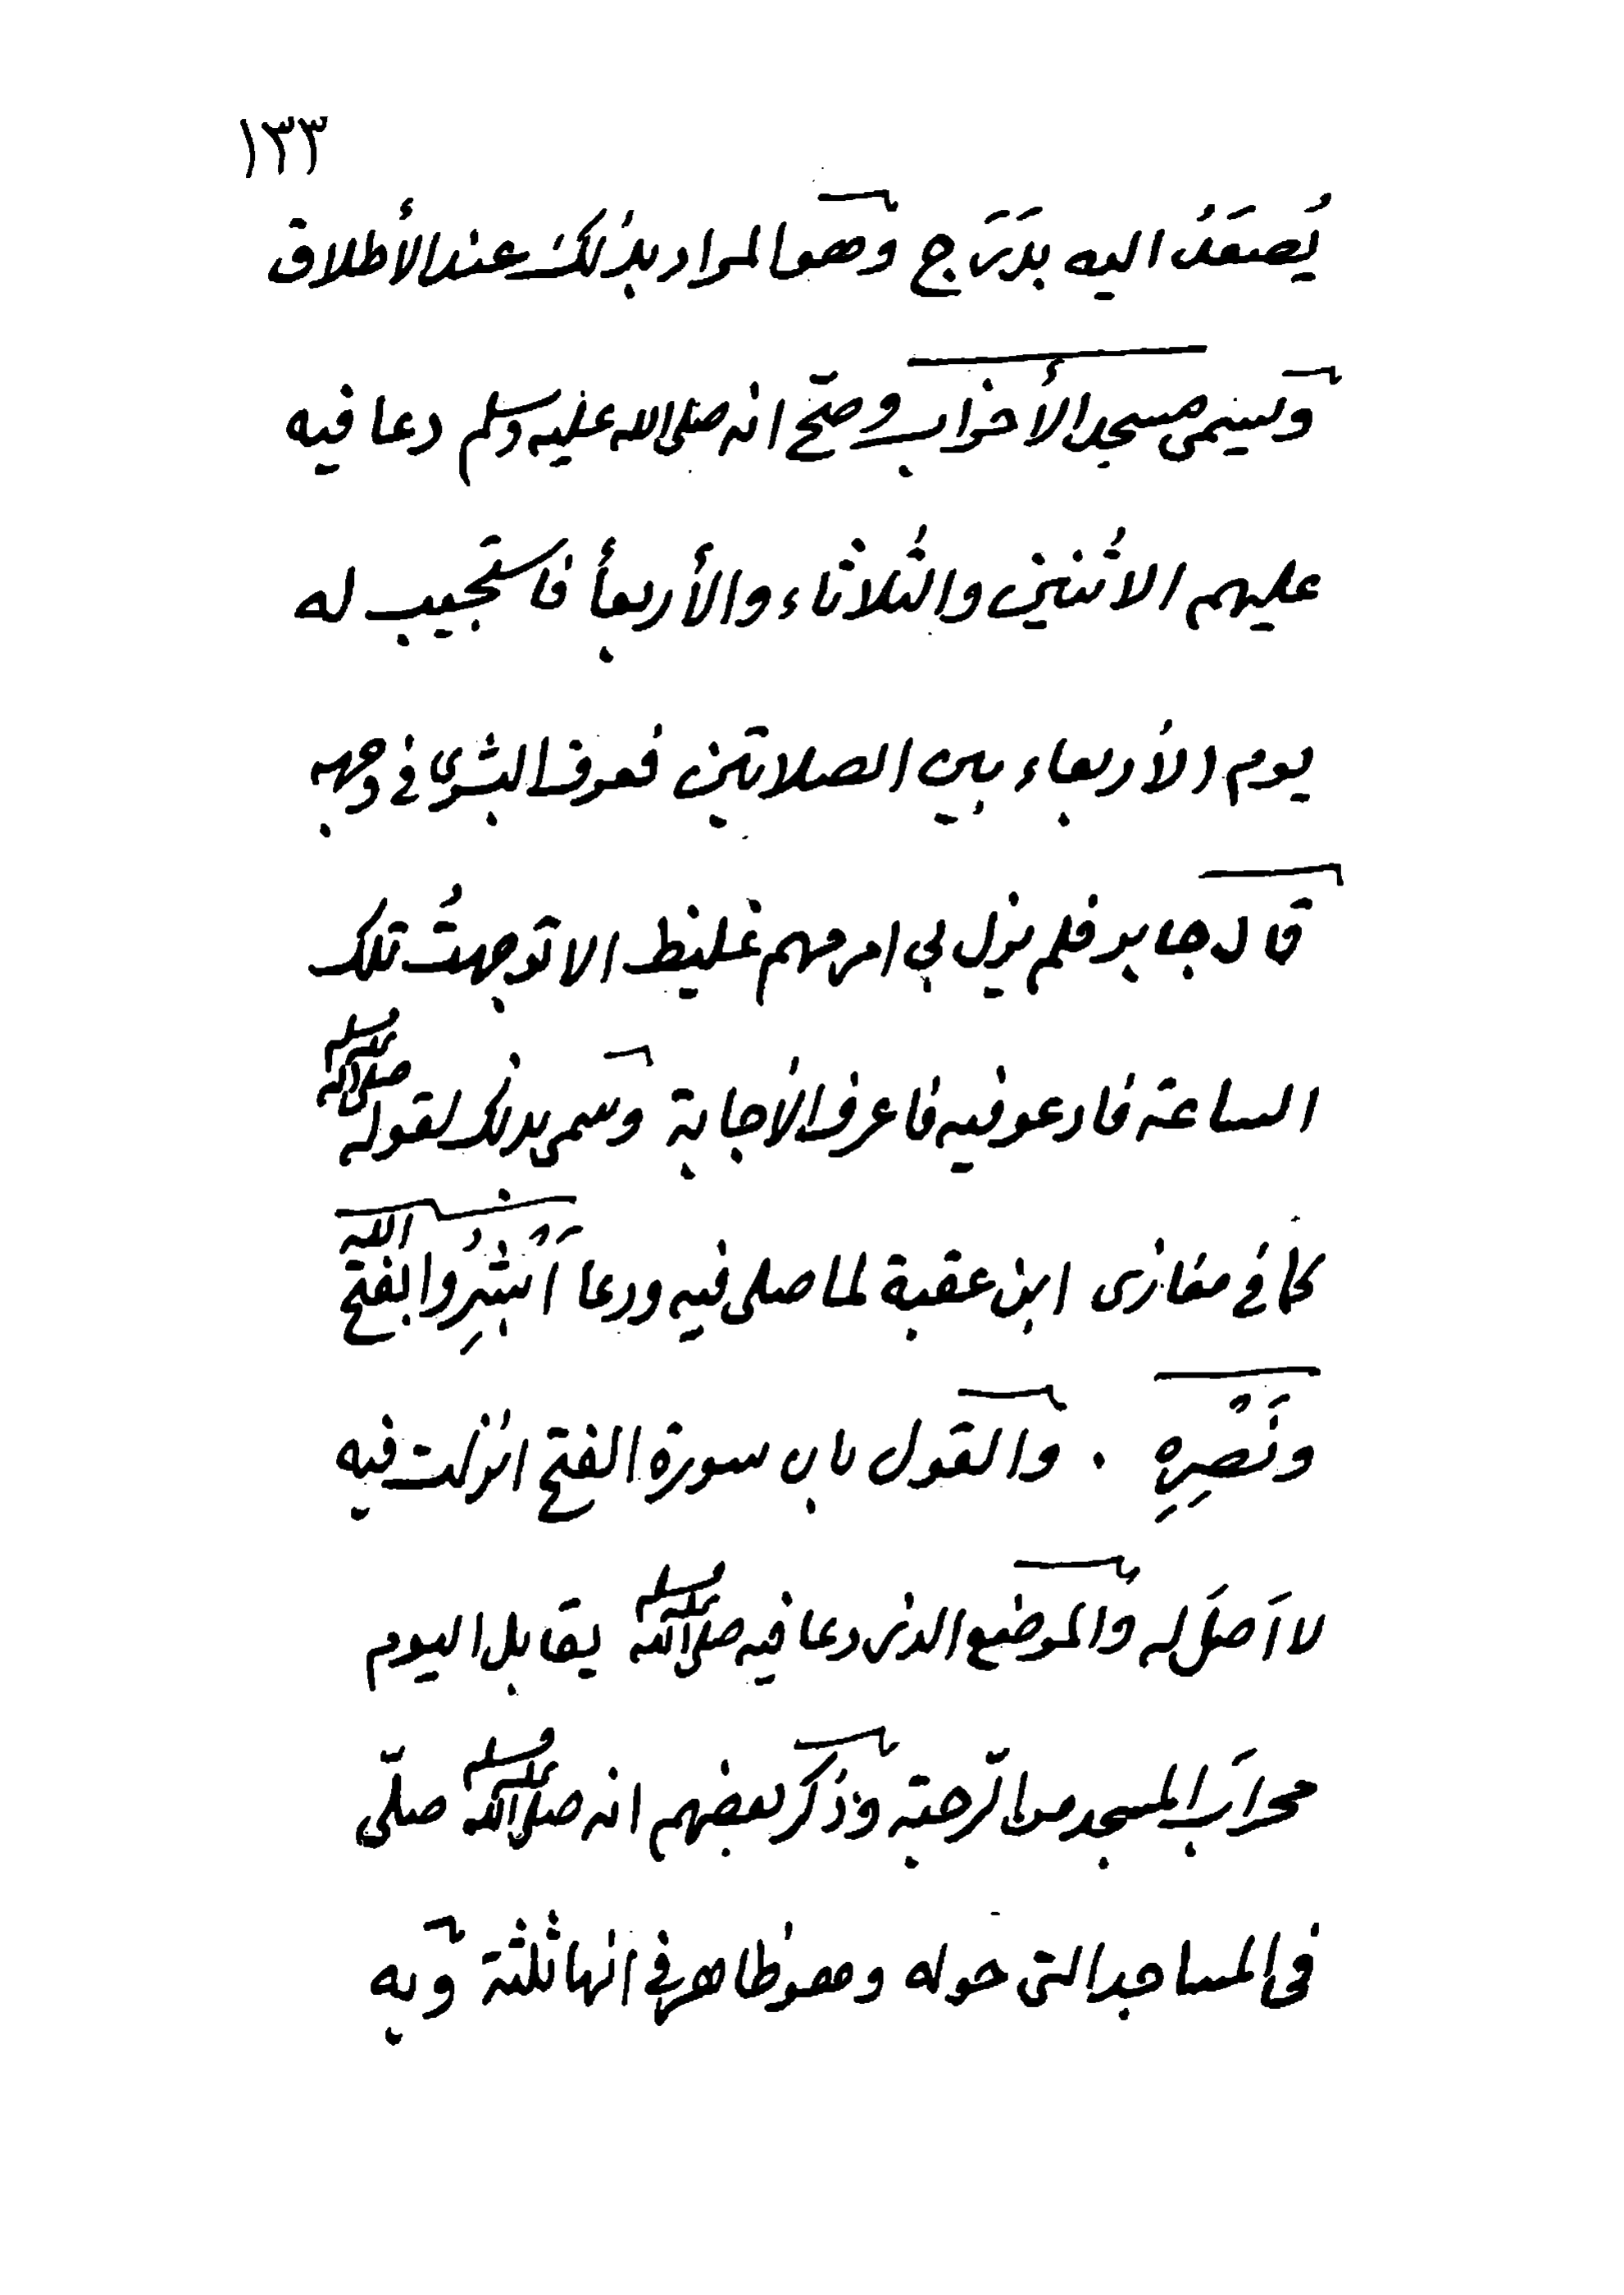 ١٣٣
يُصعَدُ اليه بدَرَج وهو المراد بذلك عند الأطلاق
ويسمى مسجد الأحزاب وصحّ انه صلى الله عليه وسلم دعا فيه
عليهم الاثنين والثلاثاء والأربعأ فاستجيب له
يوم الأربعاء بين الصلاتين فعرف البشرى في وجهه
قال جابر فلم ينزل بي امر مهم غليظ الا توجهتُ تلك
الساعة فادعو فيه فاعرف الأجابة وسمى بذلك لقوله صلى الله عليه وسلم
كما في مغازى ابن عقبة لما صلى فيه ودعا اَبْشِرُوا بفتح الله
ونَصْرِهِ . والقول بان سورة الفتح انزلت فيه
لا اَصلَ له والموضع الذى دعا فيه صلى الله عليه وسلم يقابل اليوم
محرابَ المسجد من الرّحبة وذكر بعضهم انه صلى الله عليه وسلم صلّى
فى المساجد التى حوله وهو ظاهر في انها ثلثة وبه